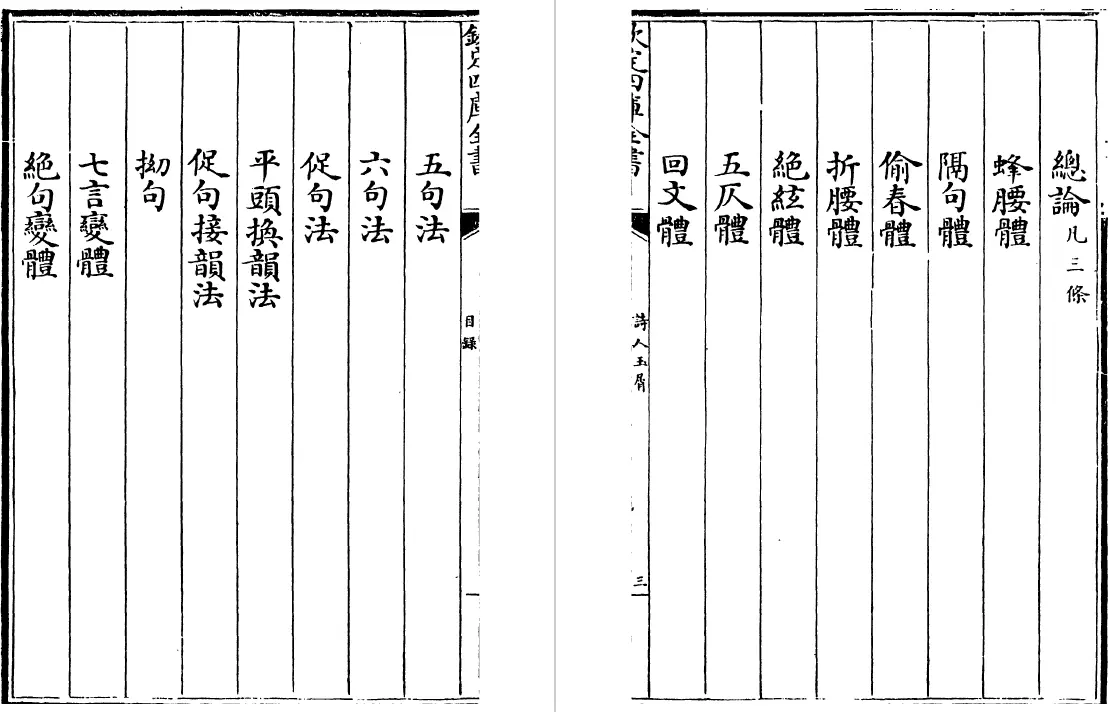 總論凡三條
蜂腰體
隔句體
偷春體
折腰體
絶絃體
五仄體
回文體
欽定四庫全書
詩人玉屑
三
欽定四庫全書
目録
五句法
六句法
促句法
平頭換韻法
促句接韻法
拗句
七言變體
絶句變體